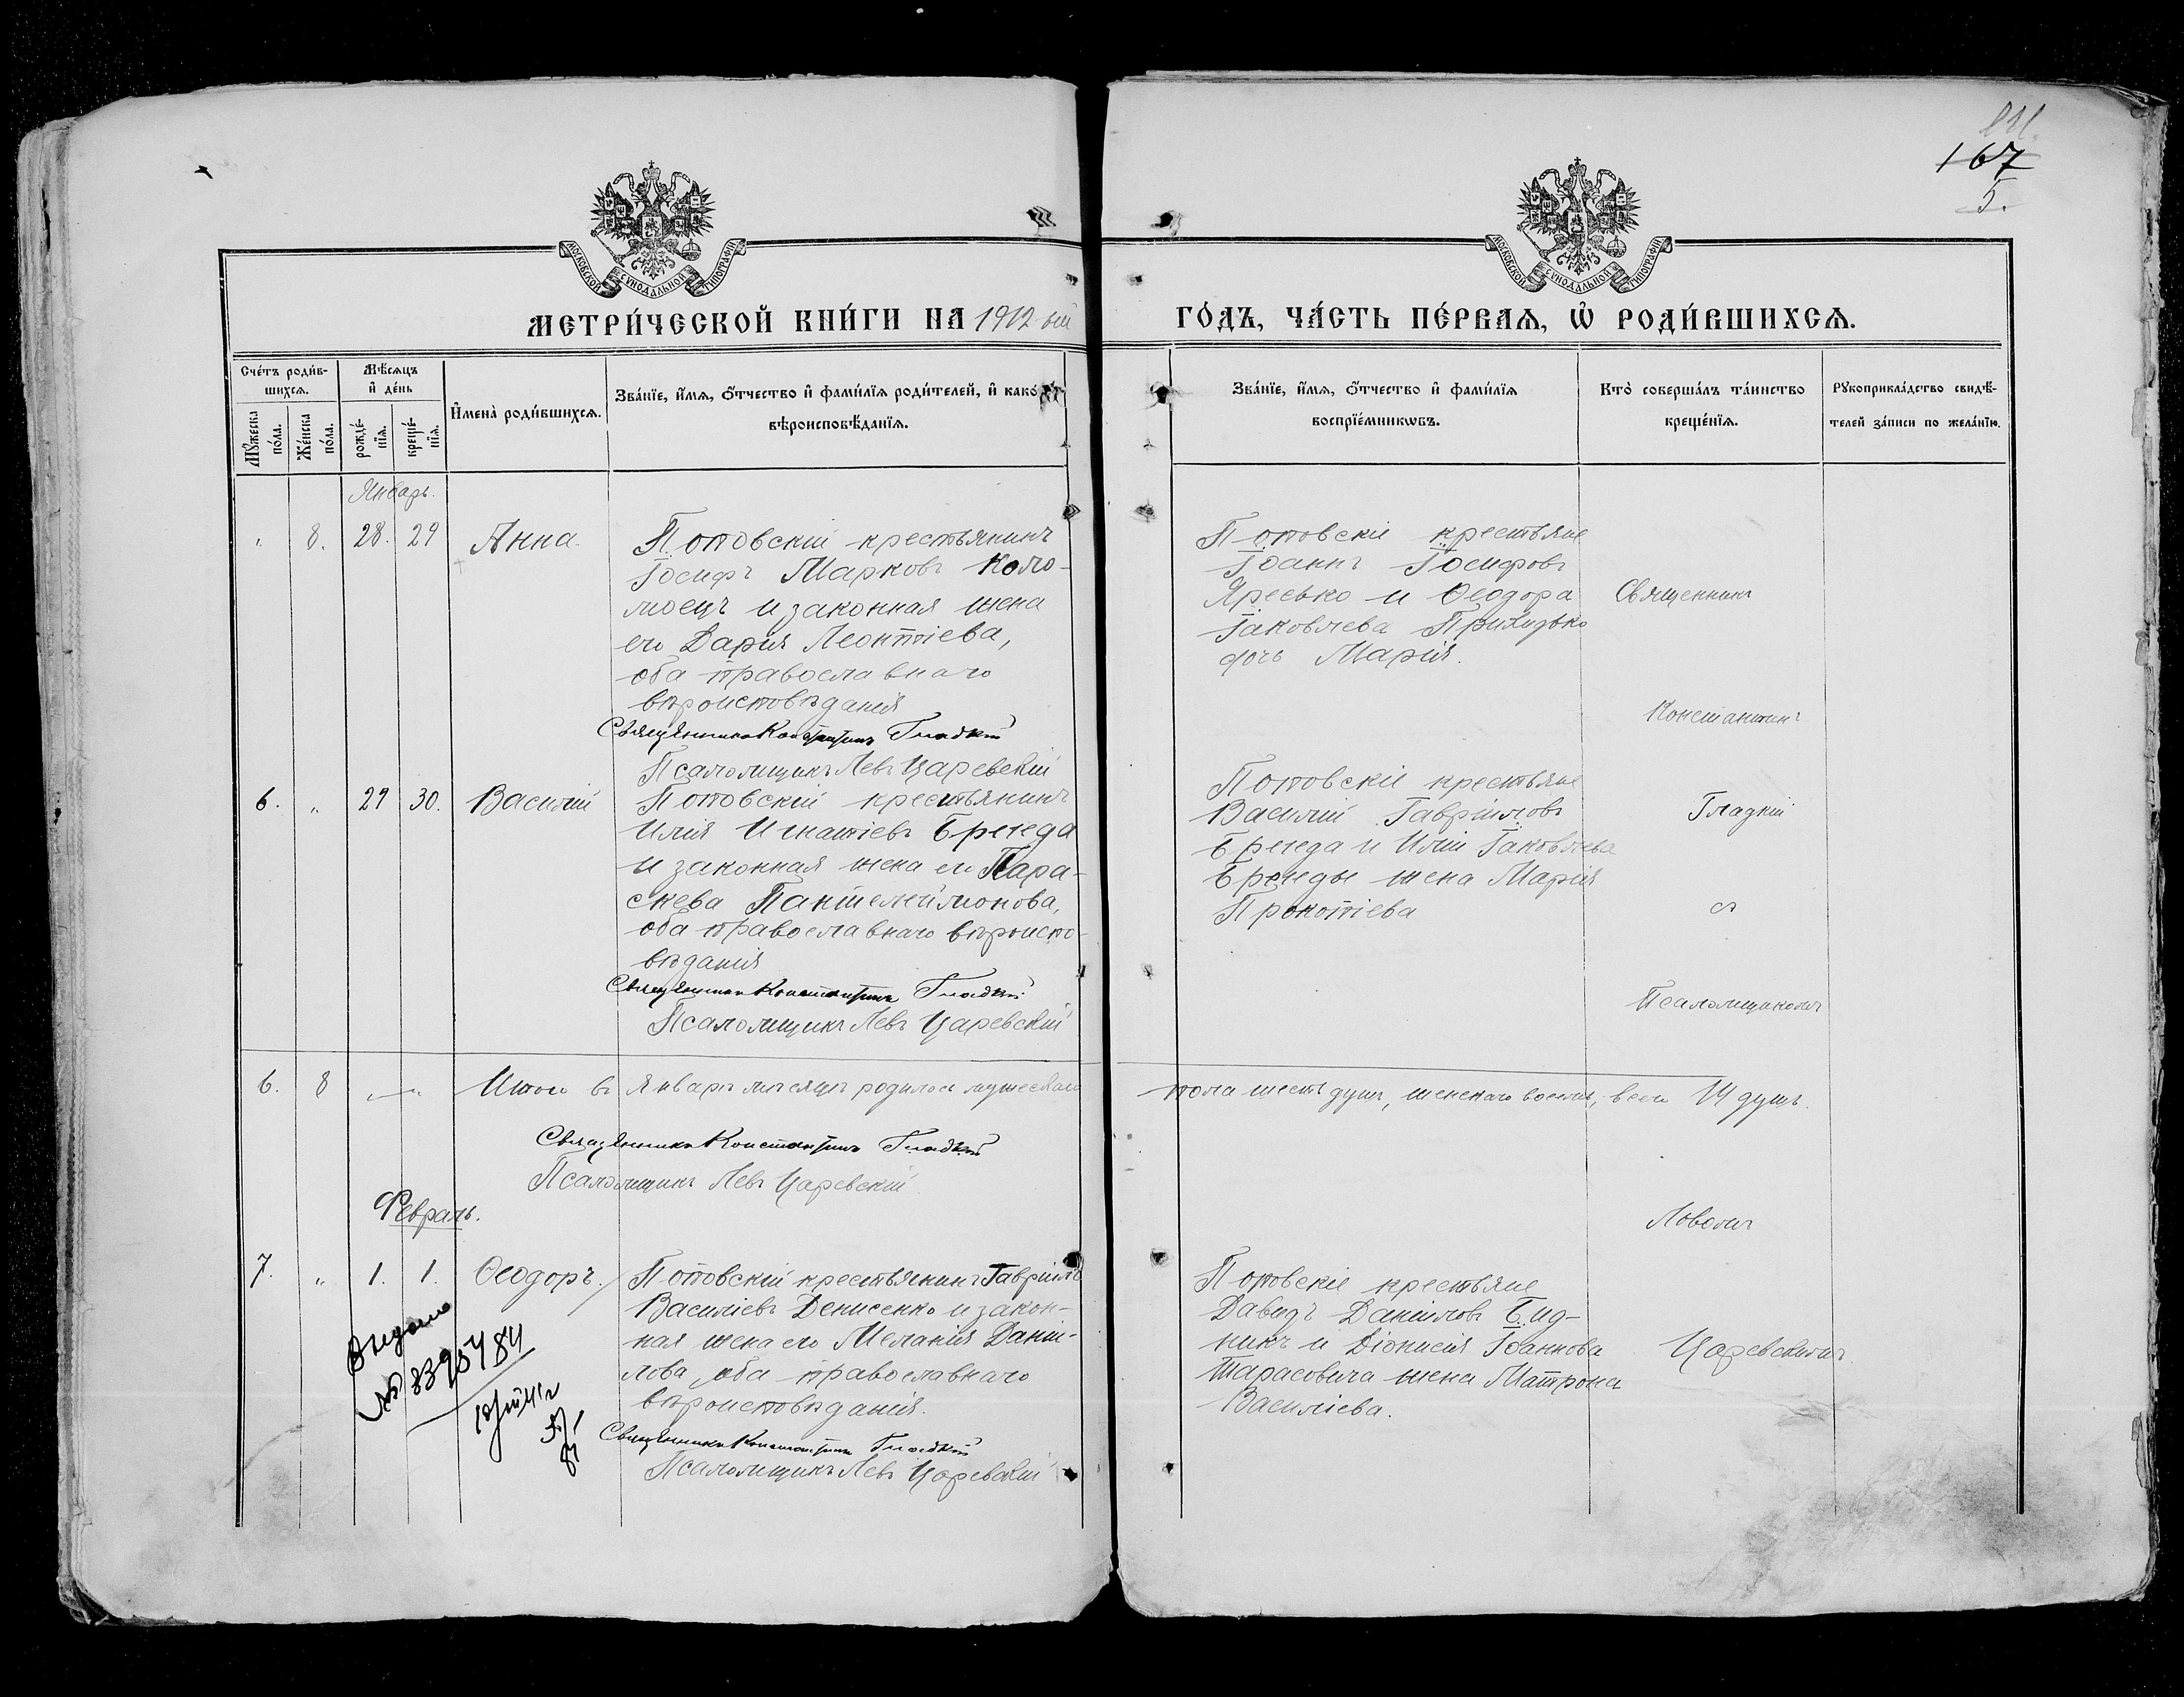 167
5.
МОСКОВСКОЙ СУНОДАЛЬНОЙ ТИПОГРАФІИ
МОСКОВСКОЙ СУНОДАЛЬНОЙ ТИПОГРАФІИ
МЕТРИ́ЧЕСКОЙ КНИ́ГИ НА 1912-ый ГО́ДЪ, ЧА́СТЬ ПЕ́РВАѦ, Ѡ҆ РОДИ́ВШИХСѦ.
Сче́тъ роди́в-
шихсѧ.
Мꙋ́жеска по́ла.
Же́нска по́ла.
Мѣ́сѧцъ
и҆ де́нь
рожде́-
нїѧ.
креще́-
нїѧ.
И҆мена̀ роди́вшихсѧ.
Зва́нїе, и҆́мѧ, ѻ҆́тчество и҆ фами́лїѧ роди́телей, и҆ како́гѡ
вѣроисповѣ́данїѧ.
Зва́нїе, и҆́мѧ, ѻ҆́тчество и҆ фами́лїѧ
воспрїе́мникѡвъ.
Кто̀ соверша́лъ та́инство
креще́нїѧ.
Рꙋкоприкла́дство свидѣ́-
телей за́писи по жела́нїю.
Январь.
" 8. 28. 29 Анна
Поповскій крестьянинъ
Іосифъ Марковъ Коло-
моецъ и законная жена
его Дарія Леонтіева,
оба православнаго
вѣроисповѣданія
Священникъ Константинъ Гладкій
Псаломщикъ Левъ Царевскій
Поповскіе крестьяне
Іоаннъ Іосифовъ
Яресько и Ѳеодора
Іаковлева Приходько
дочь Марія.
Священникъ
Константинъ
6. " 29 30. Василій
Поповскій крестьянинъ
Илія Игнатіевъ Бренда
и законная жена его Пара-
скева Пантелеймонова,
оба православнаго вѣроиспо-
вѣданія
Священникъ Константинъ Гладкій
Псаломщикъ Левъ Царевскій
Поповскіе крестьяне
Василій Гавріиловъ
Бренда и Иліи Іаковлева
Бренды жена Марія
Прокопіева
Гладкій
съ
Псаломщикомъ
6. 8 — " Итого въ Январѣ мѣсяцѣ родилось мужескаго пола шесть душъ, женскаго восемь, всего 14 душъ.
Священникъ Константинъ Гладкій
Псаломщикъ Левъ Царевскій
Февраль.
Львомъ
7. " 1. 1. Ѳеодоръ.
Поповскій крестьянинъ Гавріилъ
Василіевъ Денисенко и закон-
ная жена его Меланія Даніи-
лова, оба православнаго
вѣроисповѣданія.
Священникъ Константинъ Гладкій
Псаломщикъ Левъ Царевскій
Поповскіе крестьяне
Давидъ Даніиловъ Бид-
никъ и Діонисія Іоаннова
Тарасовича жена Матрона
Василіева.
Царевскимъ
Видано